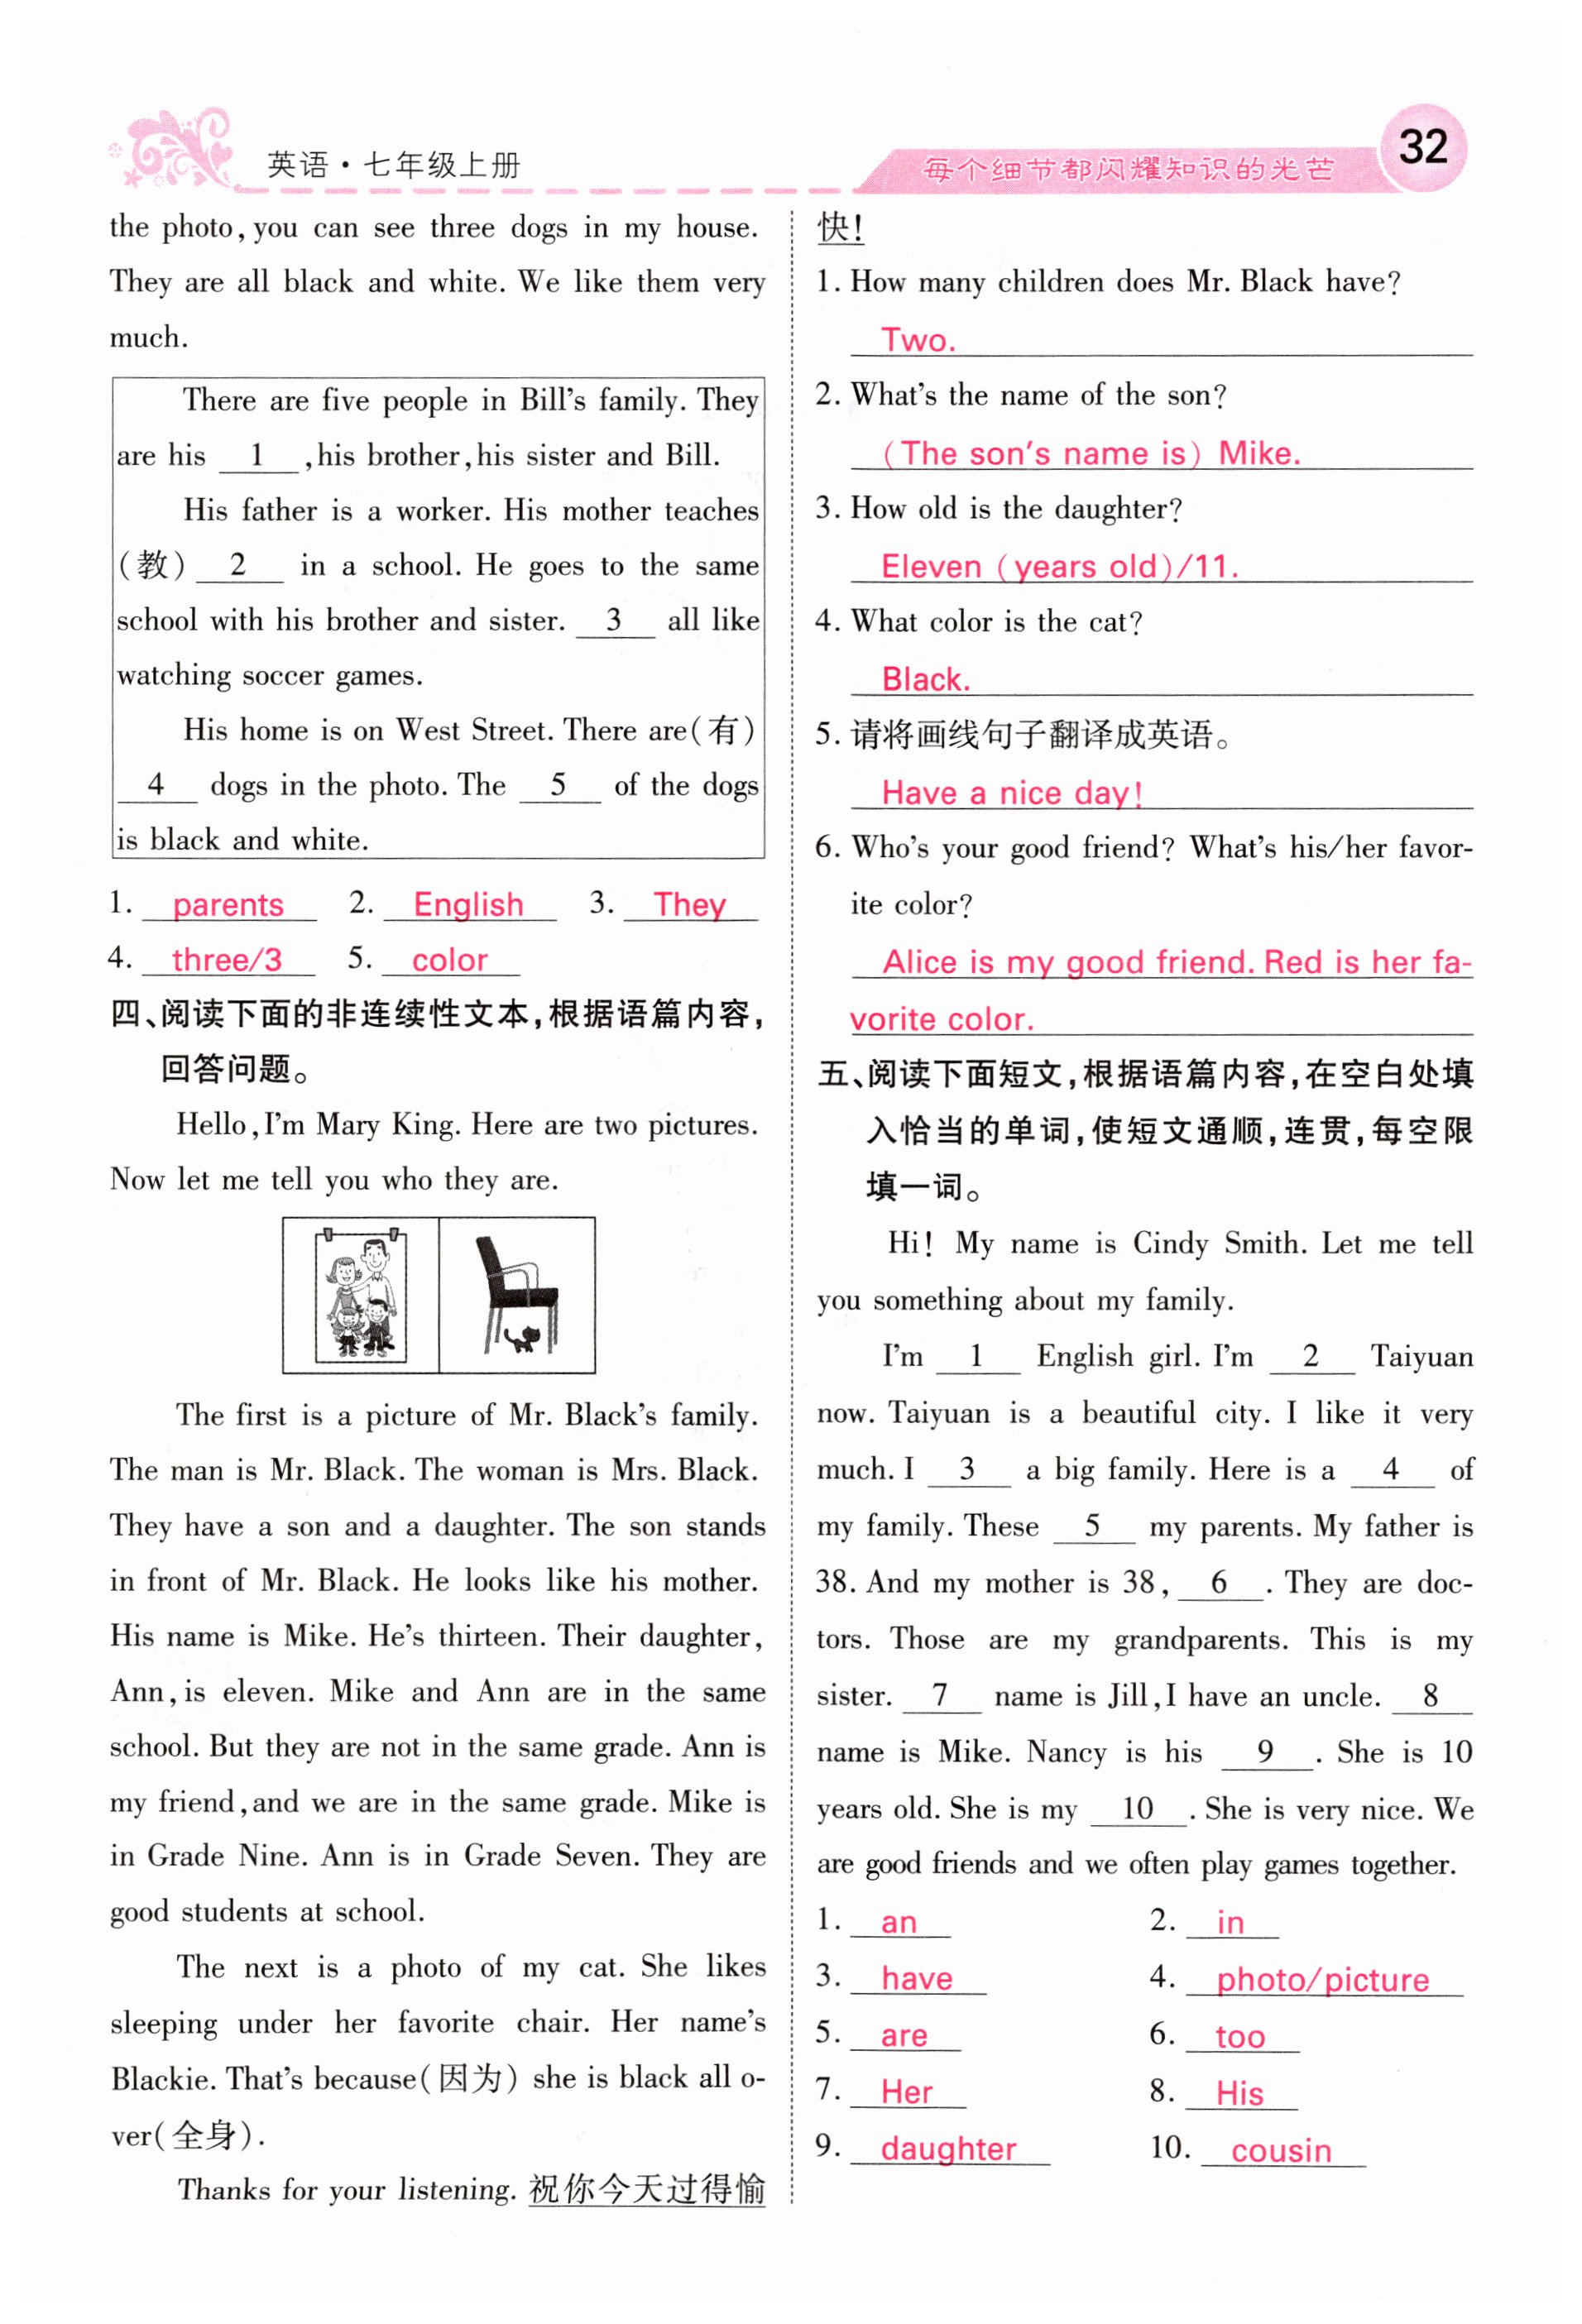 英语·七年级上册
每个细节都闪耀知识的光芒
32
the photo, you can see three dogs in my house.
They are all black and white. We like them very
much.
There are five people in Bill's family. They
are his 1 , his brother, his sister and Bill.
His father is a worker. His mother teaches
(教) 2 in a school. He goes to the same
school with his brother and sister. 3 all like
watching soccer games.
His home is on West Street. There are(有)
4 dogs in the photo. The 5 of the dogs
is black and white.
1. parents 2. English 3. They
4. three/3 5. color
四、阅读下面的非连续性文本,根据语篇内容,
回答问题。
Hello, I'm Mary King. Here are two pictures.
Now let me tell you who they are.
The first is a picture of Mr. Black's family.
The man is Mr. Black. The woman is Mrs. Black.
They have a son and a daughter. The son stands
in front of Mr. Black. He looks like his mother.
His name is Mike. He's thirteen. Their daughter,
Ann, is eleven. Mike and Ann are in the same
school. But they are not in the same grade. Ann is
my friend, and we are in the same grade. Mike is
in Grade Nine. Ann is in Grade Seven. They are
good students at school.
The next is a photo of my cat. She likes
sleeping under her favorite chair. Her name's
Blackie. That's because(因为) she is black all o-
ver(全身).
Thanks for your listening. 祝你今天过得愉
快!
1. How many children does Mr. Black have?
Two.
2. What's the name of the son?
(The son's name is) Mike.
3. How old is the daughter?
Eleven (years old)/11.
4. What color is the cat?
Black.
5. 请将画线句子翻译成英语。
Have a nice day!
6. Who's your good friend? What's his/her favor-
ite color?
Alice is my good friend. Red is her fa-
vorite color.
五、阅读下面短文,根据语篇内容,在空白处填
入恰当的单词,使短文通顺,连贯,每空限
填一词。
Hi! My name is Cindy Smith. Let me tell
you something about my family.
I'm 1 English girl. I'm 2 Taiyuan
now. Taiyuan is a beautiful city. I like it very
much. I 3 a big family. Here is a 4 of
my family. These 5 my parents. My father is
38. And my mother is 38, 6 . They are doc-
tors. Those are my grandparents. This is my
sister. 7 name is Jill, I have an uncle. 8
name is Mike. Nancy is his 9 . She is 10
years old. She is my 10 . She is very nice. We
are good friends and we often play games together.
1. an 2. in
3. have 4. photo/picture
5. are 6. too
7. Her 8. His
9. daughter 10. cousin